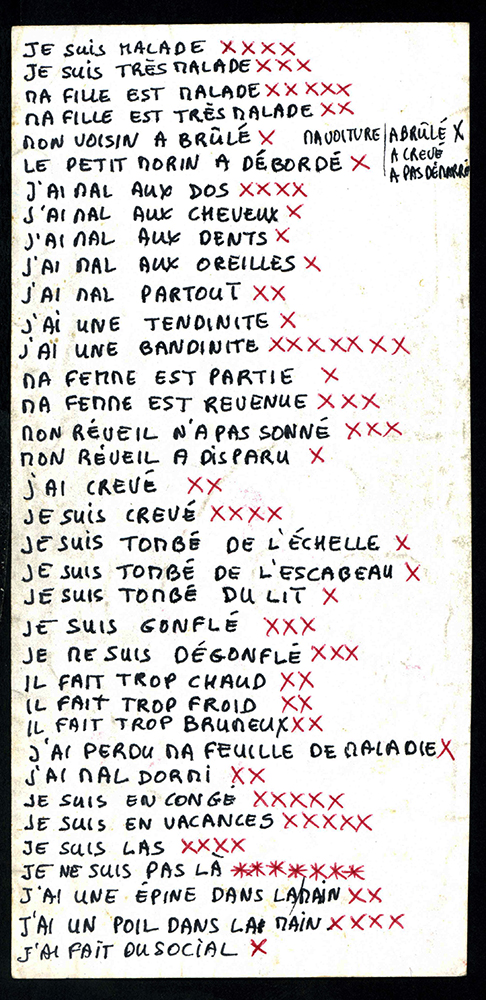 JE SUIS MALADE XXXX
JE SUIS TRÈS MALADE XXX
MA FILLE EST MALADE XXXXX
MA FILLE EST TRÈS MALADE XX
MON VOISIN A BRÛLÉ X MA VOITURE A BRÛLÉ X
A CREVÉ
A PAS DÉMARRÉ
LE PETIT MORIN A DÉBORDÉ X
J'AI MAL AUX DOS XXXX
J'AI MAL AUX CHEVEUX X
J'AI MAL AUX DENTS X
J'AI MAL AUX OREILLES X
J'AI MAL PARTOUT XX
J'AI UNE TENDINITE X
J'AI UNE BANDINITE XXXXXXX
MA FEMME EST PARTIE X
MA FEMME EST REVENUE XXX
MON RÉVEIL N'A PAS SONNÉ XXX
MON RÉVEIL A DISPARU X
J'AI CREVÉ XX
JE SUIS CREVÉ XXXX
JE SUIS TOMBÉ DE L'ÉCHELLE X
JE SUIS TOMBÉ DE L'ESCABEAU X
JE SUIS TOMBÉ DU LIT X
JE SUIS GONFLÉ XXX
JE ME SUIS DÉGONFLÉ XXX
IL FAIT TROP CHAUD XX
IL FAIT TROP FROID XX
IL FAIT TROP BRUMEUX XX
J'AI PERDU MA FEUILLE DE MALADIE X
J'AI MAL DORMI XX
JE SUIS EN CONGÉ XXXXX
JE SUIS EN VACANCES XXXXX
JE SUIS LAS XXXX
JE NE SUIS PAS LÀ *******
J'AI UNE ÉPINE DANS LA MAIN XX
J'AI UN POIL DANS LA MAIN XXXX
J'AI FAIT DU SOCIAL X